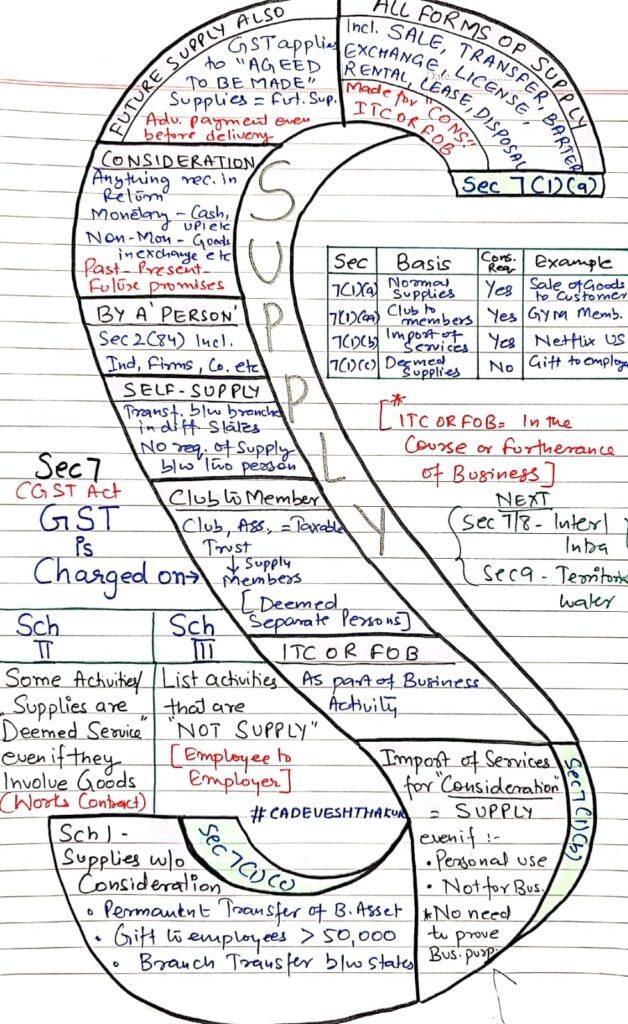 FUTURE SUPPLY ALSO
GST applies
to "AGEED
TO BE MADE"
Supplies = Fut. Sup.
Adv. payment even
before delivery
ALL FORMS OF SUPPLY
Incl. SALE, TRANSFER, BARTER
EXCHANGE, LICENSE,
RENTAL, LEASE, DISPOSAL
Made for "CONS"
ITC OR FOB
Sec 7(1)(a)
SUPPLY
CONSIDERATION
Anything rec. in
Return
Monetary - Cash,
UPI etc
Non-Mon - Goods
in exchange etc
Past - Present -
Future promises
BY A 'PERSON'
Sec 2(84) Incl.
Ind, Firms, Co. etc
SELF-SUPPLY
Transf. b/w branche
in diff States
No req. of Supply
b/w two person
Sec Basis Cons. Req Example
7(1)(a) Normal Supplies Yes Sale of Goods to Customer
7(1)(aa) Club to members Yes GYM Memb.
7(1)(b) Import of Services Yes Netflix US
7(1)(c) Deemed Supplies No Gift to employe
[* ITC OR FOB = In the
Course or furtherance
of Business]
NEXT
Sec 7/8 - Inter/
Intra
Sec 9 - Territori
water
Sec 7
CGST Act
GST
is
Charged on →
Club to Member
Club, Ass, = Taxable
Trust
↓ Supply
Members
[Deemed
Separate Persons]
ITC OR FOB
As part of Business
Activity
Sch
II
Some Activities/
Supplies are
"Deemed Service"
even if they
Involve Goods
(Works Contract)
Sch
III
List activities
that are
"NOT SUPPLY"
[Employee to
Employer]
#CADEVESHTHAKUR
Import of Services
for "Consideration"
= SUPPLY
even if :-
• Personal use
• Not for Bus.
*No need
to prove
Bus. purp.
Sec 7(1)(b)
Sch 1 -
Supplies w/o
Consideration
• Permanent Transfer of B. Asset
• Gift to employees > 50,000
• Branch Transfer b/w states
Sec 7(1)(c)